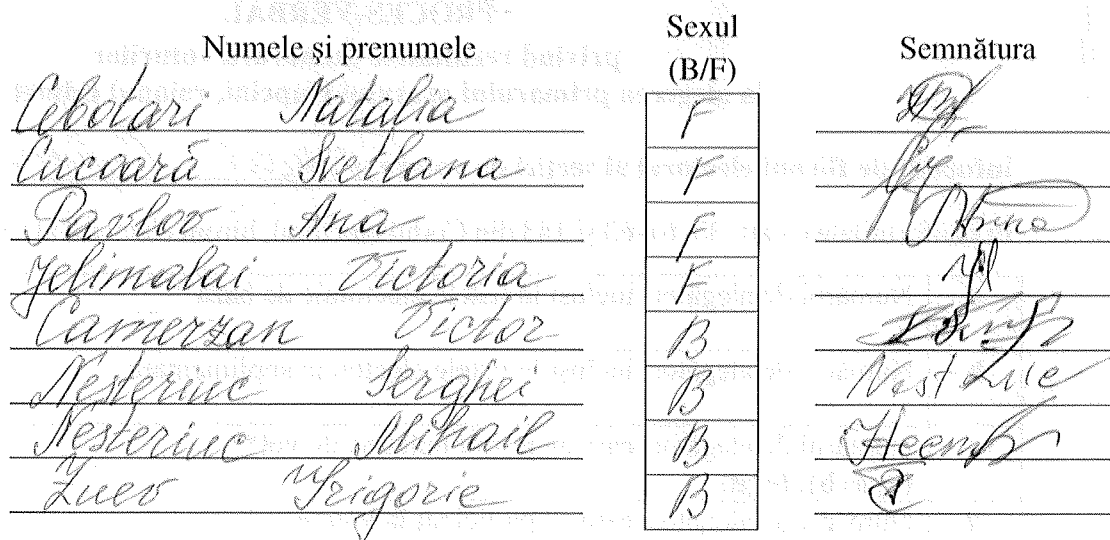 Numele și prenumele Sexul (B/F) Semnătura
Cebotari Natalia F
Cucoară Svetlana F
Pavlov Ana F
Jelimalai Victoria F
Camerzan Victor B
Nesteriuc Serghei B
Nesteriuc Mihail B
Zuev Grigorie B